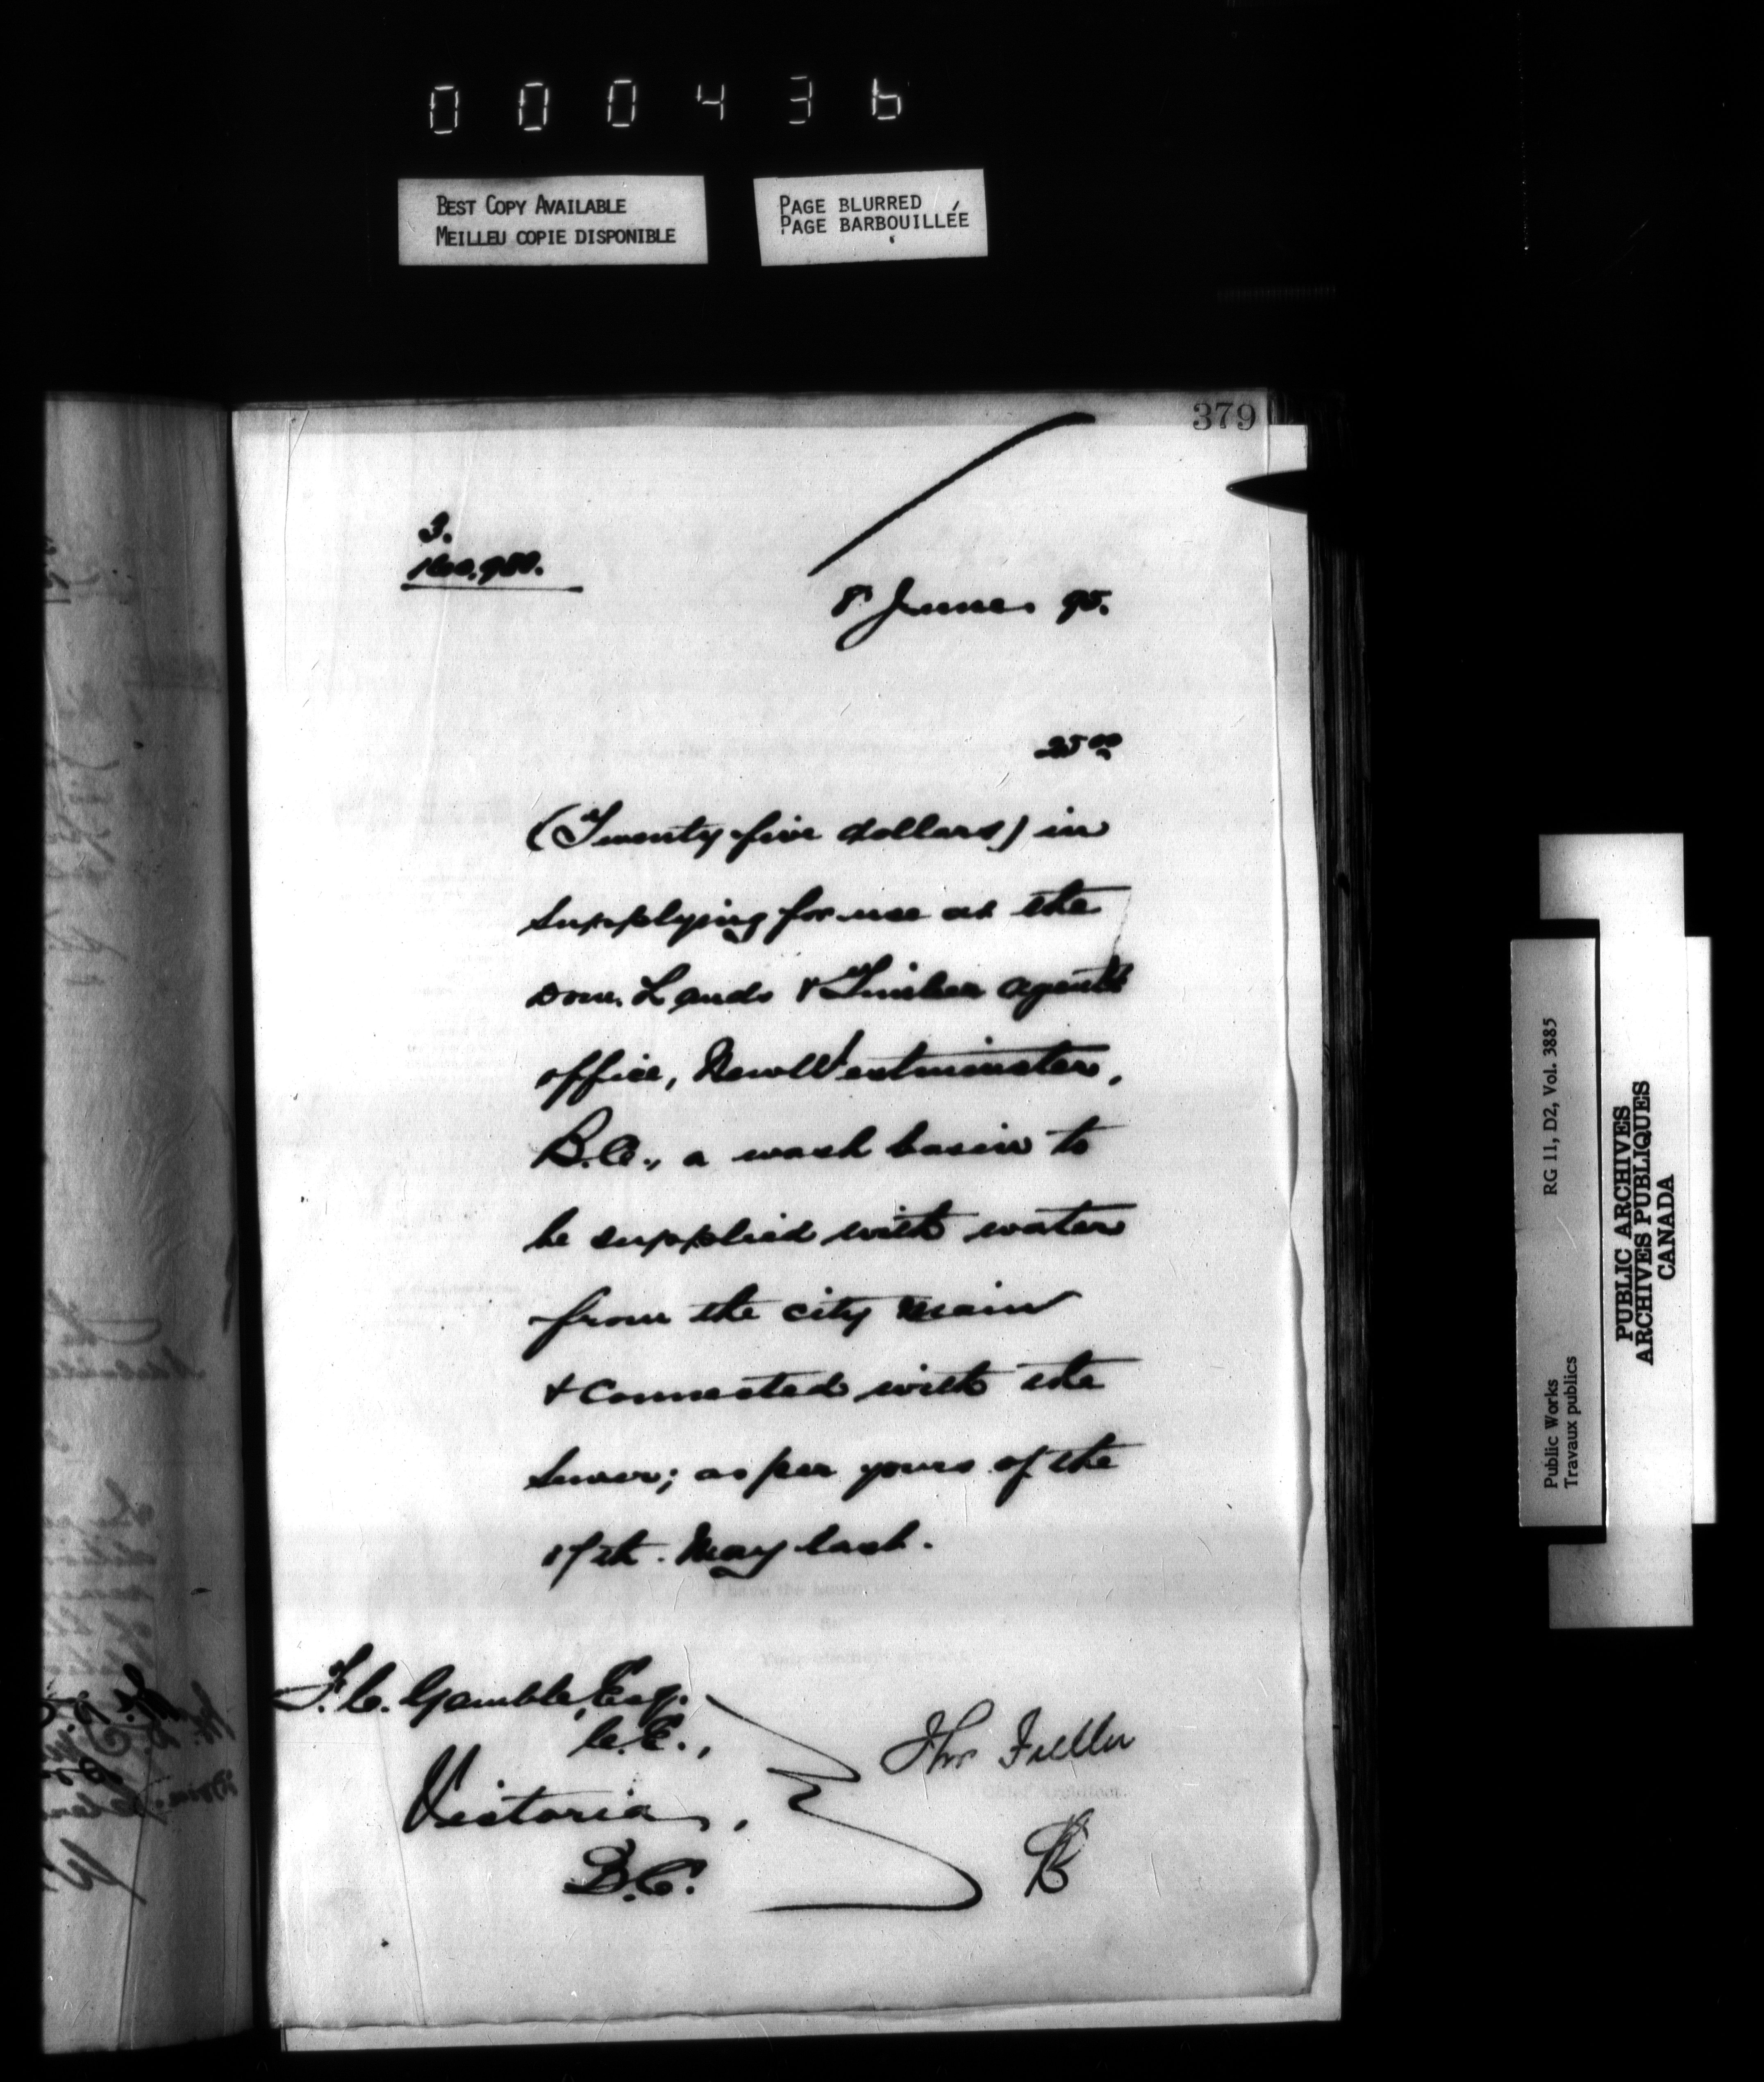 000436
BEST COPY AVAILABLE
MEILLEU COPIE DISPONIBLE
PAGE BLURRED
PAGE BARBOUILLÉE
379
3.
160,980.
8 June 95.
25 00
(Twenty five dollars) in
supplying for use at the
Dom. Lands & Timber Agent's
office, New Westminster,
B.C., a wash basin to
be supplied with water
from the city main
& connected with the
sewer; as per yours of the
17th. May last.
F.C. Gamble, Esq.
C.E.,
Victoria,
B.C.
Thos Fuller
Chief Architect.
Public Works
Travaux publics
RG 11, D2, Vol. 3885
PUBLIC ARCHIVES
ARCHIVES PUBLIQUES
CANADA